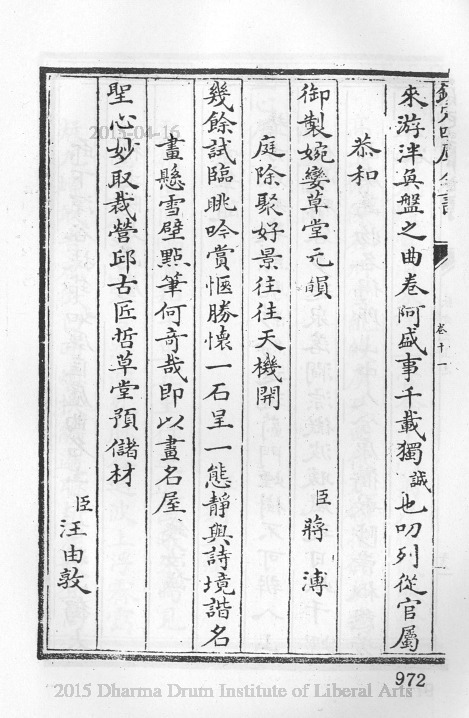 欽定四庫全書
卷十一
來游泮奐盤之曲卷阿盛事千載獨誠也叨列從官屬
恭和
御製婉孌草堂元韻 臣蔣溥
庭除聚好景往往天機開
幾餘試臨眺吟賞愜勝懷一石呈一態靜與詩境諧名
畫懸雪壁㸃筆何奇哉即以畫名屋
聖心妙取裁營邱古匠哲草堂預儲材
臣汪由敦
972
2015-04-16
2015 Dharma Drum Institute of Liberal Arts